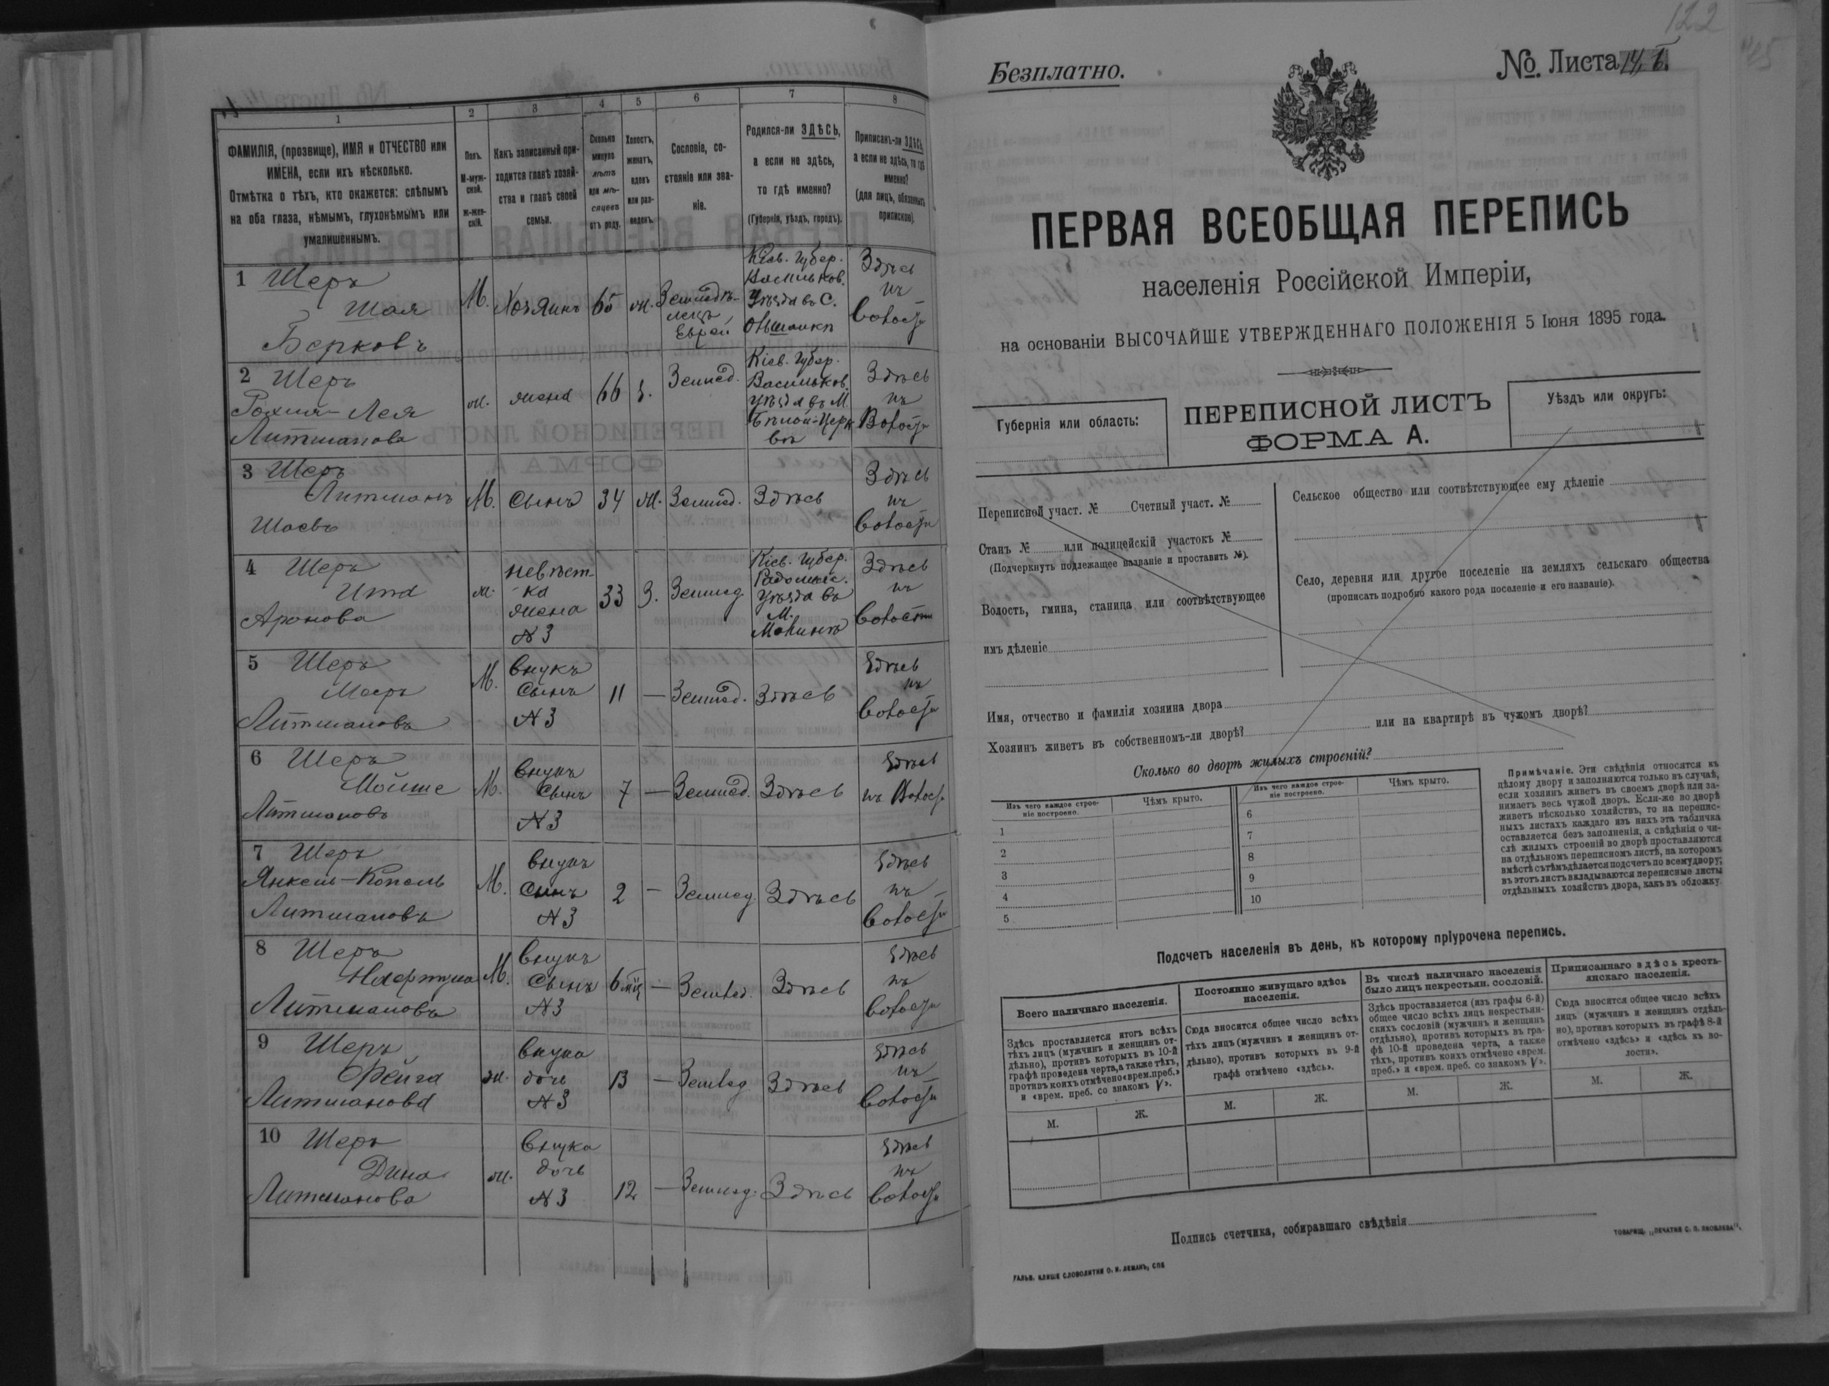 1
2
3
4
5
6
7
8
ФАМИЛІЯ, (прозвище), ИМЯ и ОТЧЕСТВО или
ИМЕНА, если ихъ нѣсколько.
Отмѣтка о тѣхъ, кто окажется: слѣпымъ
на оба глаза, нѣмымъ, глухонѣмымъ или
умалишеннымъ.
Полъ.
М-муж-
ской.
Ж-жен-
скій.
Какъ записанный при-
ходится главѣ хозяй-
ства и главѣ своей
семьи.
Сколько
минуло
лѣтъ
или мѣ-
сяцевъ
отъ роду.
Холостъ,
женатъ,
вдовъ
или раз-
веденъ.
Сословіе, со-
стояніе или зва-
ніе.
Родился-ли ЗДѢСЬ,
а если не здѣсь,
то гдѣ именно?
(Губернія, уѣздъ, городъ).
Приписанъ-ли ЗДѢСЬ,
а если не здѣсь, то гдѣ
именно?
(для лицъ, обязанныхъ
припискою).
1 Шеръ
Шая
Берковъ
М.
Хозяинъ
65
ж.
Еврей
Кіев. Губер.
Васильков.
Уѣзда въ С.
Здѣсь
въ
Волости
2 Шеръ
Литманова
ж.
жена
66
з.
Землед.
Кіев. Губер.
Васильков.
Уѣзда въ М.
Бѣлой-Церк
вѣ
Здѣсь
въ
Волости
3 Шеръ
Литманъ
Шаевъ
М.
сынъ
34
ж.
Землед.
Здѣсь
Здѣсь
въ
Волости
4 Шеръ
Ита
Аронова
ж.
невѣст-
ка
жена
№ 3
33
З.
Землед
Кіев. Губер.
Уѣзда въ
М.
Здѣсь
въ
Волости
5 Шеръ
Мееръ
Литмановъ
М.
Внукъ
Сынъ
№ 3
11
—
Землед.
Здѣсь
Здѣсь
въ
Волости
6 Шеръ
Мойше
Литмановъ
М.
Внукъ
Сынъ
№ 3
7
—
Землед.
Здѣсь
Здѣсь
въ Волости
7 Шеръ
Янкель-Копель
Литмановъ
М.
Внукъ
Сынъ
№ 3
2
—
Землед
Здѣсь
Здѣсь
въ
Волости
8 Шеръ
Литмановъ
М.
Внукъ
Сынъ
№ 3
6 мѣс
—
Землед.
Здѣсь
Здѣсь
въ
Волости
9 Шеръ
Фейга
Литманова
ж.
внука
дочь
№ 3
13
—
Землед
Здѣсь
Здѣсь
въ
Волости
10 Шеръ
Дина
Литманова
ж.
Внука
дочь
№ 3
12
—
Землед.
Здѣсь
Здѣсь
въ
Волости
122
Безплатно.
№ Листа
ПЕРВАЯ ВСЕОБЩАЯ ПЕРЕПИСЬ
населенія Россійской Имперіи,
на основаніи ВЫСОЧАЙШЕ УТВЕРЖДЕННАГО ПОЛОЖЕНІЯ 5 Іюня 1895 года.
Губернія или область:
ПЕРЕПИСНОЙ ЛИСТЪ
ФОРМА А.
Уѣздъ или округъ:
Переписной участ. № Счетный участ. №
Станъ № или полицейскій участокъ №
(Подчеркнуть подлежащее названіе и проставить №).
Волость, гмина, станица или соотвѣтствующее
имъ дѣленіе
Сельское общество или соотвѣтствующее ему дѣленіе
Село, деревня или другое поселеніе на земляхъ сельскаго общества
(прописать подробно какого рода поселеніе и его названіе).
Имя, отчество и фамилія хозяина двора
Хозяинъ живетъ въ собственномъ-ли дворѣ? или на квартирѣ въ чужомъ дворѣ?
Сколько во дворѣ жилыхъ строеній?
Изъ чего каждое строе-
ніе построено.
Чѣмъ крыто.
Изъ чего каждое строе-
ніе построено.
Чѣмъ крыто.
1
2
3
4
5
6
7
8
9
10
Примѣчаніе. Эти свѣдѣнія относятся къ
цѣлому двору и заполняются только въ случаѣ,
если хозяинъ живетъ въ своемъ дворѣ или за-
нимаетъ весь чужой дворъ. Если-же во дворѣ
живетъ нѣсколько хозяйствъ, то на перепис-
ныхъ листахъ каждаго изъ нихъ эта табличка
оставляется безъ заполненія, а свѣдѣнія о чи-
слѣ жилыхъ строеній во дворѣ проставляются
на отдѣльномъ переписномъ листѣ, на которомъ
вмѣстѣ съ тѣмъ дѣлается подсчетъ по всему двору;
въ этотъ листъ вкладываются переписные листы
отдѣльныхъ хозяйствъ двора, какъ въ обложку
Подсчетъ населенія въ день, къ которому пріурочена перепись.
Всего наличнаго населенія.
Здѣсь проставляется итогъ всѣхъ
тѣхъ лицъ (мужчинъ и женщинъ от-
дѣльно), противъ которыхъ въ 10-й
графѣ проведена черта, а также тѣхъ,
противъ коихъ отмѣчено «врем. преб.»
и «врем. преб. со знакомъ V».
Постоянно живущаго здѣсь
населенія.
Сюда вносится общее число всѣхъ
тѣхъ лицъ (мужчинъ и женщинъ от-
дѣльно), противъ которыхъ въ 9-й
графѣ отмѣчено «здѣсь».
Въ числѣ наличнаго населенія
было лицъ некрестьян. сословій.
Здѣсь проставляется (изъ графы 6-й)
общее число всѣхъ лицъ некрестьян-
скихъ сословій (мужчинъ и женщинъ
отдѣльно), противъ которыхъ въ гра-
фѣ 10-й проведена черта, а также
тѣхъ, противъ коихъ отмѣчено «врем.
преб.» и «врем. преб. со знакомъ V».
Приписаннаго здѣсь кресть-
янскаго населенія.
Сюда вносится общее число всѣхъ
лицъ (мужчинъ и женщинъ отдѣль-
но), противъ которыхъ въ графѣ 8-й
отмѣчено «здѣсь» и «здѣсь въ во-
лости».
М.
Ж.
М.
Ж.
М.
Ж.
М.
Ж.
Подпись счетчика, собиравшаго свѣдѣнія
ГАЛЬВ. КЛИШЕ СЛОВОЛИТНИ О. И. ЛЕМАНЪ, СПБ
ТОВАРИЩ. „ПЕЧАТНЯ С. П. ЯКОВЛЕВА".